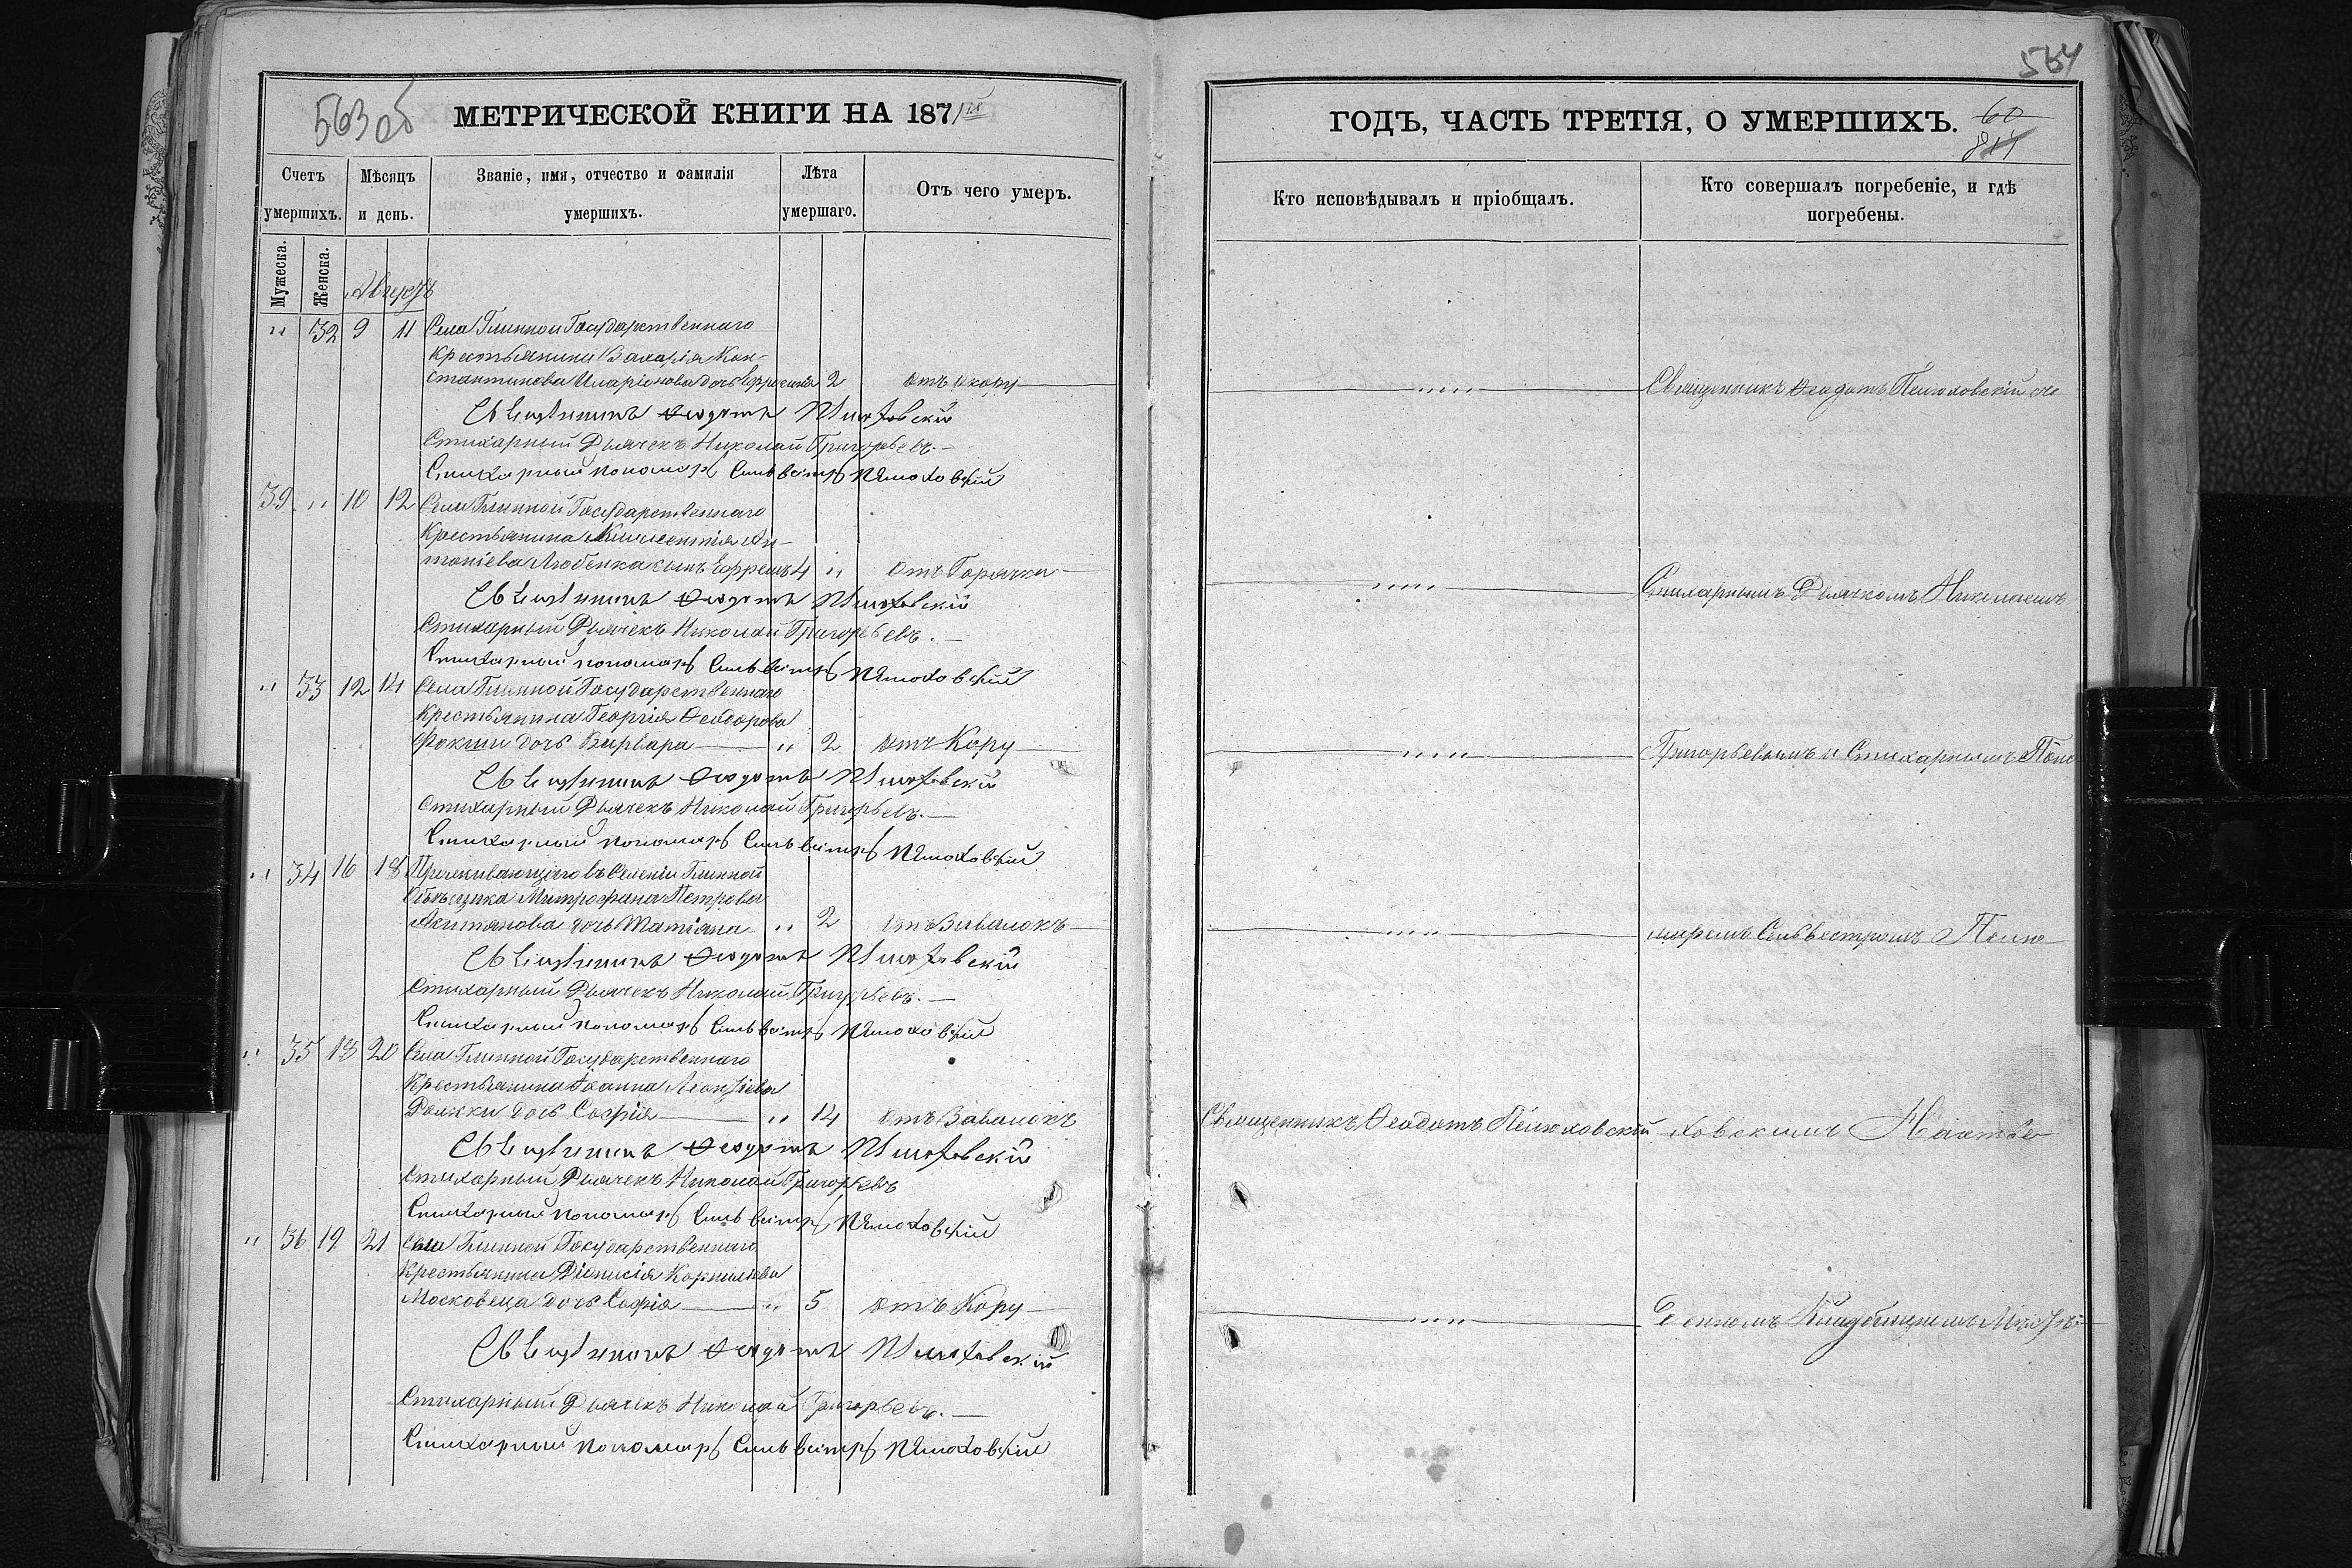 563 об
МЕТРИЧЕСКОЙ КНИГИ НА 1871й
Счетъ умершихъ.
Мѣсяцъ и день.
Званіе, имя, отчество и фамилія умершихъ.
Лѣта умершаго.
Отъ чего умеръ.
Мужеска.
Женска.
Августъ
" 32 9 11 Села Глинной Государственнаго
Крестьянина Захарія Кон-
стантинова Иларіонова дочь Евфросинія 2 отъ кору
Священникъ Ѳеодотъ Пелюховскій
Стихарный Дьячекъ Николай Григорьевъ.
Стихарный пономарь Сильвестръ Пелюховскій
39 " 10 12 Села Глинной Государственнаго
Крестьянина Ан-
тоніева Любенка сынъ Ефремъ 4 " отъ Горячки
Священникъ Ѳеодотъ Пелюховскій
Стихарный Дьячекъ Николай Григорьевъ.
Стихарный пономарь Сильвестръ Пелюховскій
" 33 12 14 Села Глинной Государственнаго
Крестьянина Георгія Ѳеодорова
Фокши дочь Варвара " 2 отъ Кору
Священникъ Ѳеодотъ Пелюховскій
Стихарный Дьячекъ Николай Григорьевъ.
Стихарный пономарь Сильвестръ Пелюховскій
" 34 16 18 Проживающаго въ Селеніи Глинной
Объѣзчика Митрофана Петрова
дочь Татіана " 2 отъ Завалокъ
Священникъ Ѳеодотъ Пелюховскій
Стихарный Дьячекъ Николай Григорьевъ.
Стихарный пономарь Сильвестръ Пелюховскій
" 35 18 20 Села Глинной Государственнаго
Крестьянина Іоанна Леонтіева
дочь Софія " 14 отъ Завалокъ
Священникъ Ѳеодотъ Пелюховскій
Стихарный Дьячекъ Николай Григорьевъ
Стихарный пономарь Сильвестръ Пелюховскій
" 36 19 21 Села Глинной Государственнаго
Крестьянина Діонисія Корниліева
Московеца дочь Софія " 5 отъ Кору
Священникъ Ѳеодотъ Пелюховскій
Стихарный Дьячекъ Николай Григорьевъ.
Стихарный пономарь Сильвестръ Пелюховскій
564
ГОДЪ, ЧАСТЬ ТРЕТІЯ, О УМЕРШИХЪ.
60
Кто исповѣдывалъ и пріобщалъ.
Кто совершалъ погребеніе, и гдѣ погребены.
" " Священникъ Ѳеодотъ Пелюховскій со
" " Стихарнымъ Дьячкомъ Николаемъ
" " Григорьевымъ и Стихарнымъ Поно
" " маремъ Сильвестромъ Пелю
Священникъ Ѳеодотъ Пелюховскій ховскимъ На отве
" " денномъ Кладбищенъ мѣстѣ